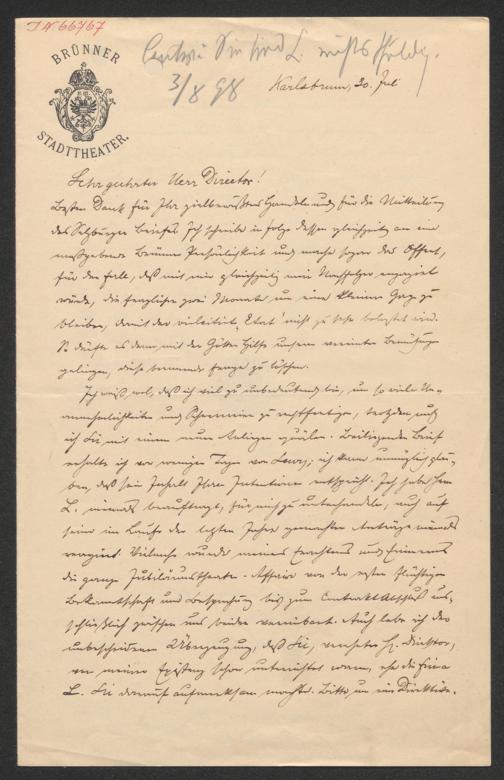 I.N. 66767
BRÜNNER
STADTTHEATER.
Sie sind L. nichts schuldig.
3/8 98
Karlsbrunn, 20. Juli
Sehr geehrter Herr Director!
Besten Dank für Ihr zielbewußtes Handeln und für die Mitteilung
des Salzburger Briefes. Ich schreibe in Folge dessen gleichzeitig an eine
maßgebende Brünner Persönlichkeit und mache sogar das Offert,
für den Fall, daß mit mir gleichzeitig mein Nachfolger engagiert
würde, die fraglichen zwei Monate um eine kleine Gage zu
bleiben, damit der Etat nicht zu sehr belastet wird.
So dürfte es denn mit der Götter Hilfe unsern vereinten Bemühungen
gelingen, diese brennende Frage zu löschen.
Ich weiß wol, daß ich viel zu unbedeutend bin, um so viele Un-
annehmlichkeiten und Scherereien zu rechtfertigen, trotzdem muß
ich Sie mit einem neuen Anliegen quälen. Beiliegenden Brief
erhalte ich vor wenigen Tagen von Lewy; ich kann unmöglich glau-
ben, daß sein Inhalt Ihren Intentionen entspricht. Ich habe Herrn
L. niemals beauftragt, für mich zu unterhandeln, auch auf
seine im Laufe der letzten Jahre gemachten Anträge niemals
reagiert. Vielmehr wurde meines Erachtens und Erinnerns
die ganze Jubiläumstheater-Affaire von der ersten flüchtigen
Bekanntschaft und Besprechung bis zum Contraktabschluß aus-
schließlich zwischen uns beiden vereinbart. Auch habe ich die
unbescheidene Überzeugung, daß Sie, verehrter H. Direktor,
von meiner Existenz schon unterrichtet waren, ehe die Firma
L. Sie darauf aufmerksam machte. Bitte um eine Direktive.